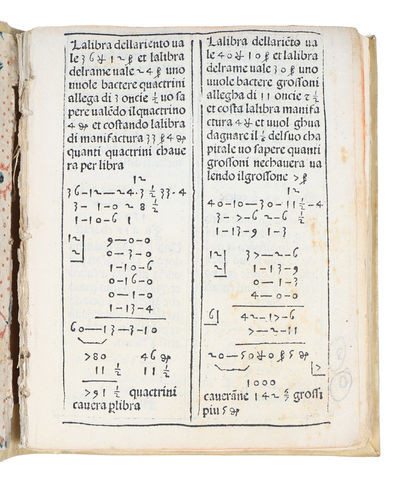 Lalibra dellariento ua
le 36 ₰ 12 ß et lalibra
delrame uale 24 ß uno
uuole bactere quactrini
allega di 3 oncie ½ uo sa
pere ualédo ilquactrino
4 ₰ et costando lalibra
di manifactura 33 ß 4 ₰
quanti quactrini chaue
ra per libra
12
36-12—24-3 ½ 33-4
3-1-0 2 8 ½
1-10-6 1
12 9—0-0
2 0—3-0
1-10-6
0-1-0
1-13-4
60—13-3-10
>80 46 ₰
11 ½ 11 ½
>91 ½ quactrini
cauera p libra
Lalibra dellariēto ua
le 40 ₰ 10 ß et lalibra
delrame uale 30 ß uno
uuole bactere grossoni
allegha di 11 oncie ½
et costa lalibra manifa
ctura 4 ₰ et uuol ghua
dagnare il ½ del suo cha
pitale uo sapere quanti
grossoni nechauera ua
lendo ilgrossone > ß
12
40-10—30-11 ½-4
3->-6 2-6 ½
1-13-9 1-3
12 3>—2-6
2 1-13-9
0—1-3
4—0-0
6 42-1>-6
>—2-11
20—50 ₰ 0 ß 5 ₰
>
1000
caueráne 142 6/7 grossi
piu 5 ₰